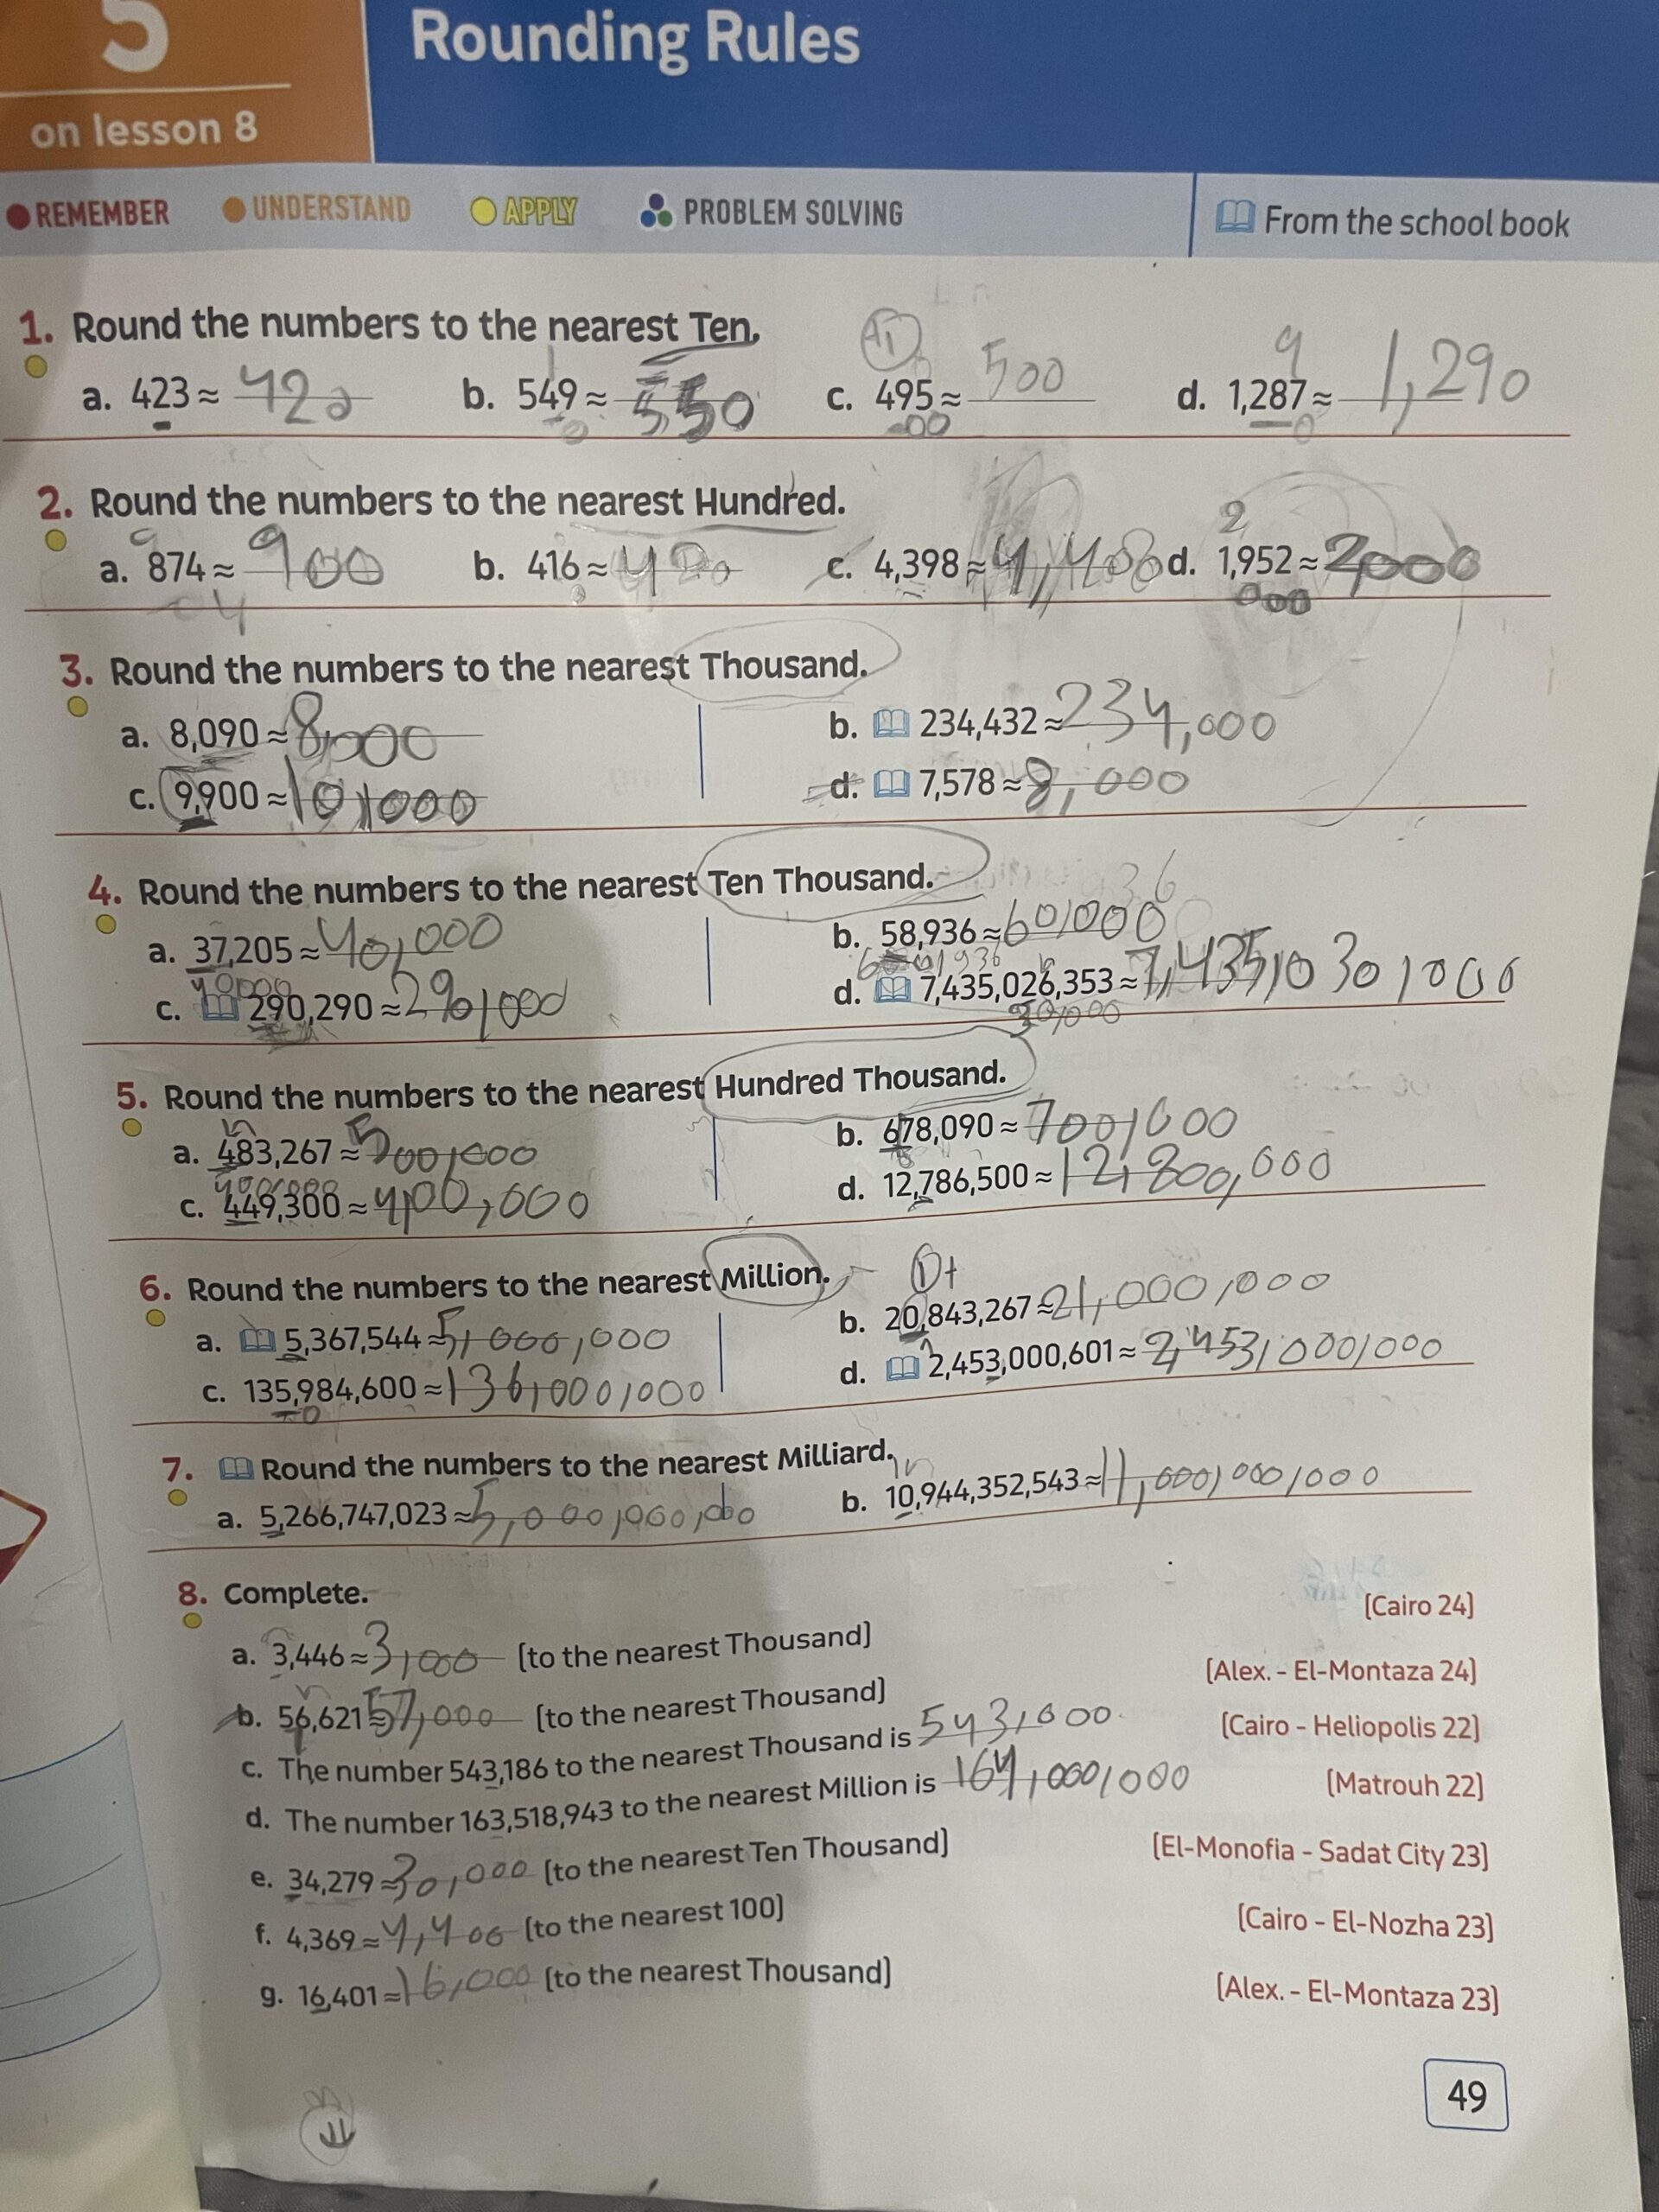 5
Rounding Rules
on lesson 8
REMEMBER UNDERSTAND APPLY PROBLEM SOLVING From the school book
1. Round the numbers to the nearest Ten.
+1 9
a. 423 ≈ 420 b. 549 ≈ 550 c. 495 ≈ 500 d. 1,287 ≈ 1,290
0 00 0
2. Round the numbers to the nearest Hundred.
9 2
a. 874 ≈ 900 b. 416 ≈ c. 4,398 ≈ 4,400 d. 1,952 ≈ 2000
000
3. Round the numbers to the nearest Thousand.
a. 8,090 ≈ 8,000 b. 234,432 ≈ 234,000
c. 9,900 ≈ 10,000 d. 7,578 ≈ 8,000
4. Round the numbers to the nearest Ten Thousand.
36
a. 37,205 ≈ 40,000 b. 58,936 ≈ 60,000
c. 290,290 ≈ 290,000 d. 7,435,026,353 ≈ 7,435,030,000
5. Round the numbers to the nearest Hundred Thousand.
a. 483,267 ≈ 500,000 b. 678,090 ≈ 700,000
c. 449,300 ≈ 400,000 d. 12,786,500 ≈ 12,800,000
6. Round the numbers to the nearest Million.
1+
a. 5,367,544 ≈ 5,000,000 b. 20,843,267 ≈ 21,000,000
c. 135,984,600 ≈ 136,000,000 d. 2,453,000,601 ≈ 2,453,000,000
7. Round the numbers to the nearest Milliard.
a. 5,266,747,023 ≈ 5,000,000,000 b. 10,944,352,543 ≈ 11,000,000,000
8. Complete.
a. 3,446 ≈ 3,000 (to the nearest Thousand) (Cairo 24)
b. 56,621 ≈ 57,000 (to the nearest Thousand) (Alex. - El-Montaza 24)
c. The number 543,186 to the nearest Thousand is 543,000 (Cairo - Heliopolis 22)
d. The number 163,518,943 to the nearest Million is 164,000,000 (Matrouh 22)
e. 34,279 ≈ 30,000 (to the nearest Ten Thousand) (El-Monofia - Sadat City 23)
f. 4,369 ≈ 4,400 (to the nearest 100) (Cairo - El-Nozha 23)
g. 16,401 ≈ 16,000 (to the nearest Thousand) (Alex. - El-Montaza 23)
49